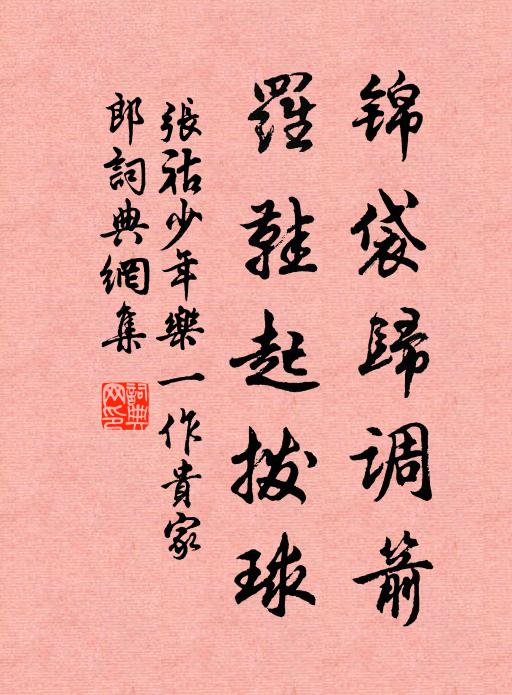 锦袋歸调箭
羅鞋起撥球
張祜少年樂一作貴家
郎詞典網集
詞典网印